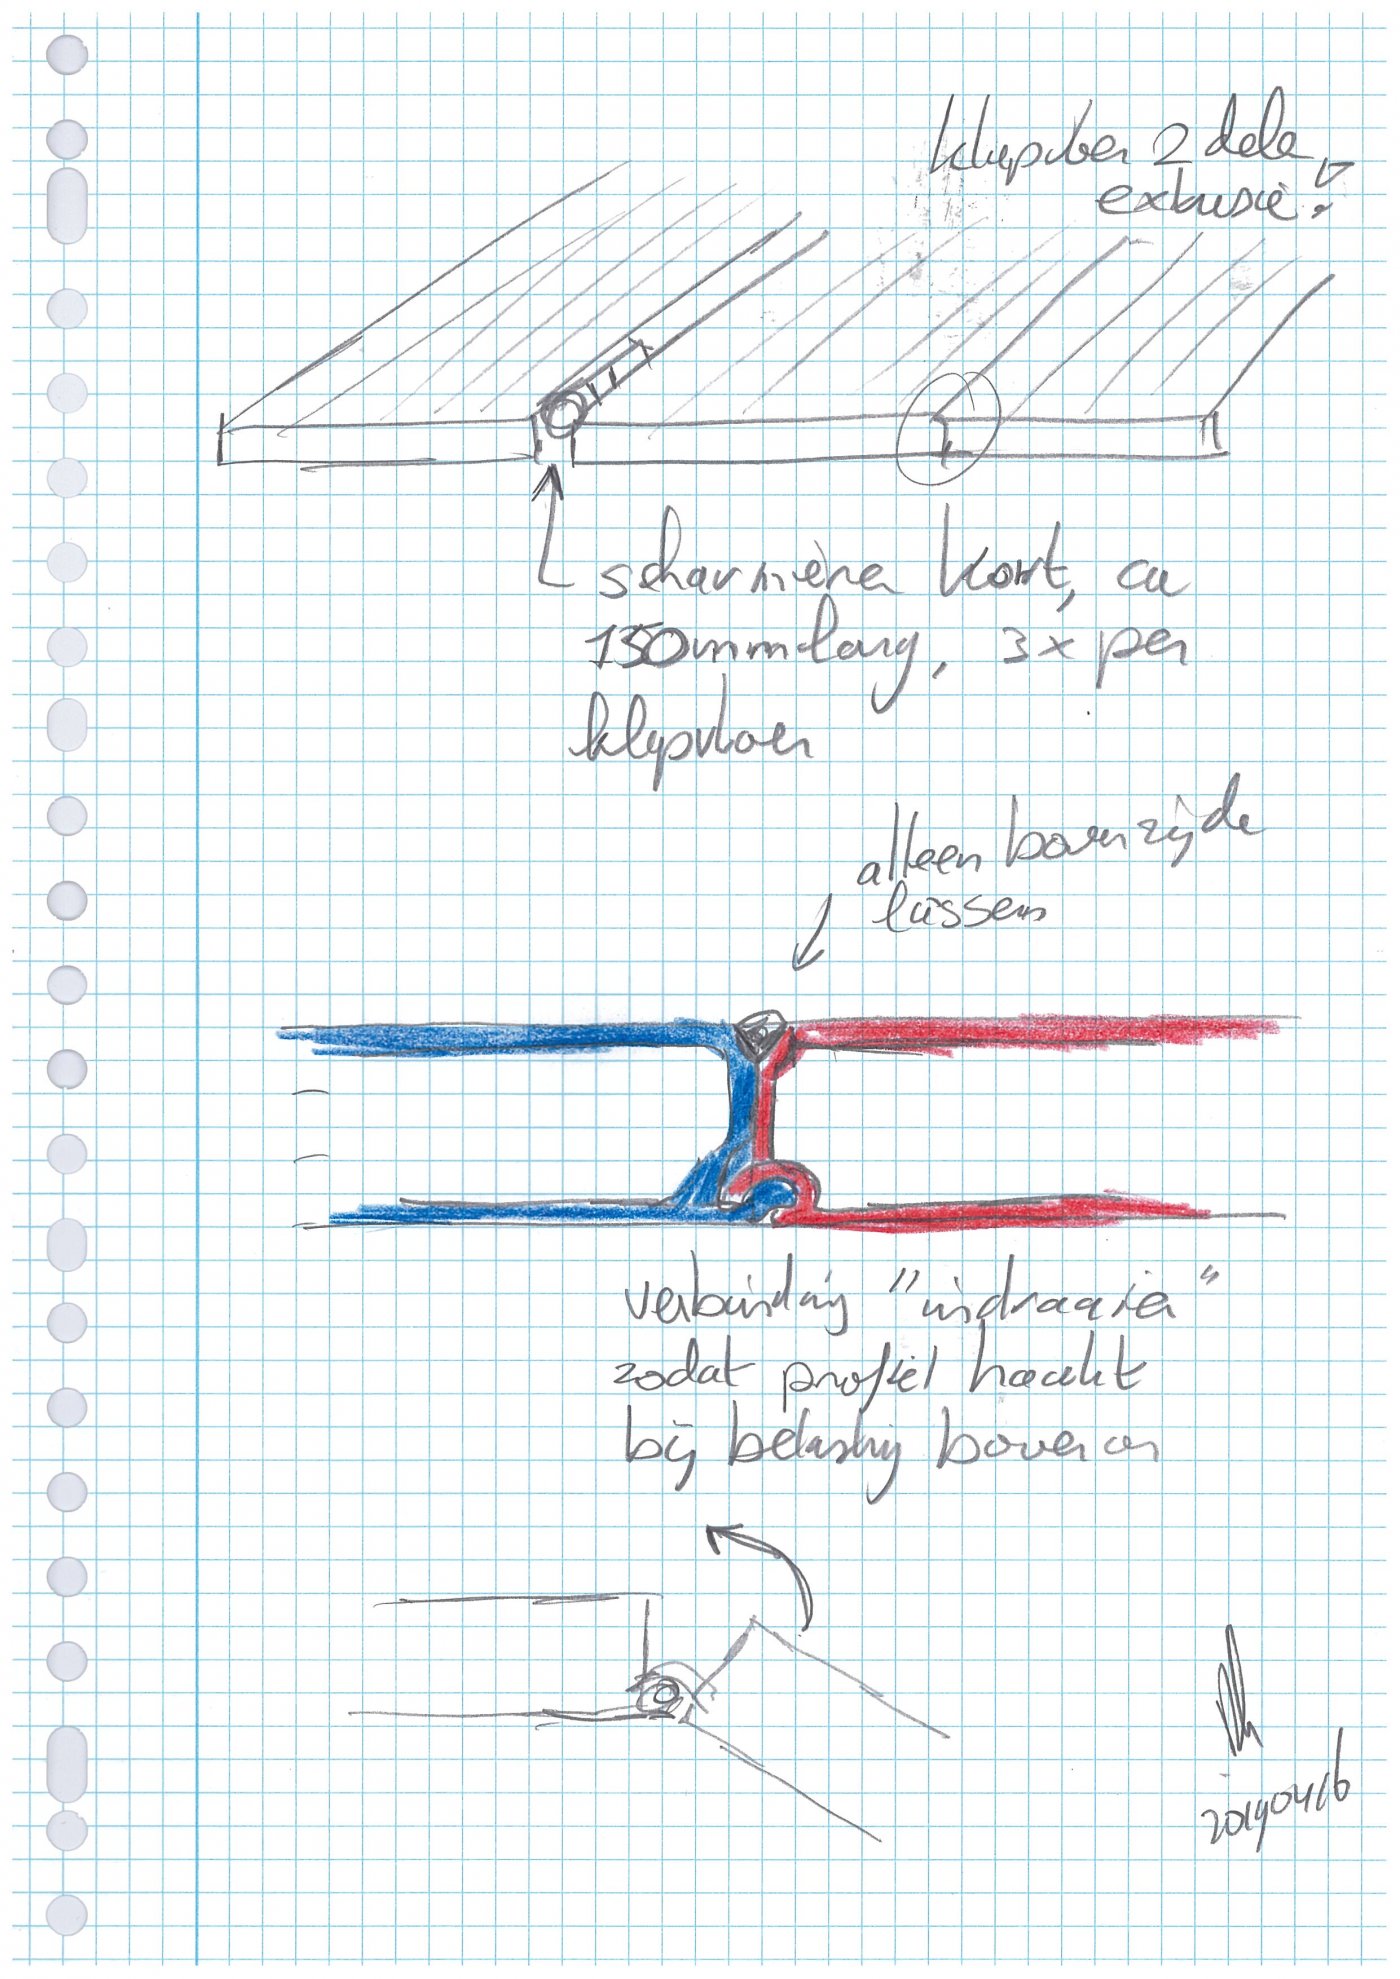 klapvloer 2 dele
extrusie?
scharnieren kort, ca
150mm lang, 3x per
klapvloer
alleen bovenzijde
lassen
verbinding "indraaien"
zodat profiel haakt
bij belasting bovenop
20190416